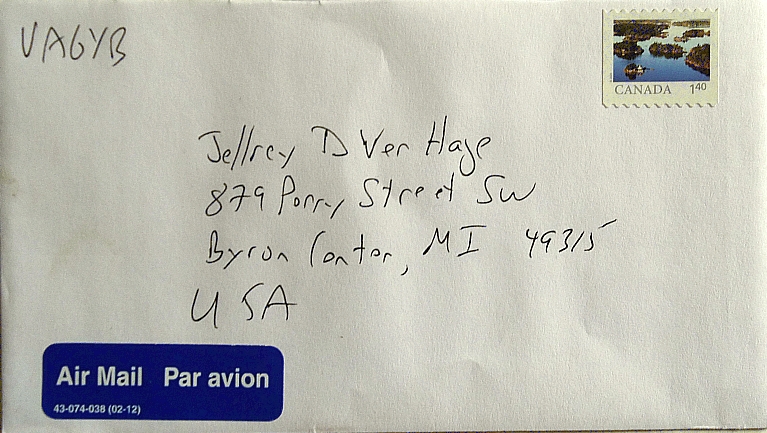 VA6YB
CANADA 140
Jeffrey D Ver Hage
879 Perry Street SW
Byron Center, MI 49315
USA
Air Mail Par avion
43-074-038 (02-12)